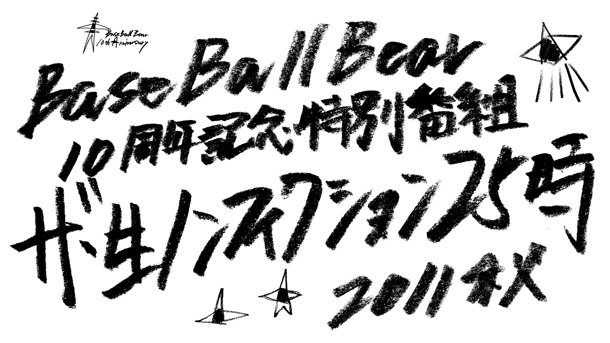 Base Ball Bear
10th Anniversary
Base Ball Bear
10周年記念特別番組
ザ・生ノンフィクション25時
2011秋